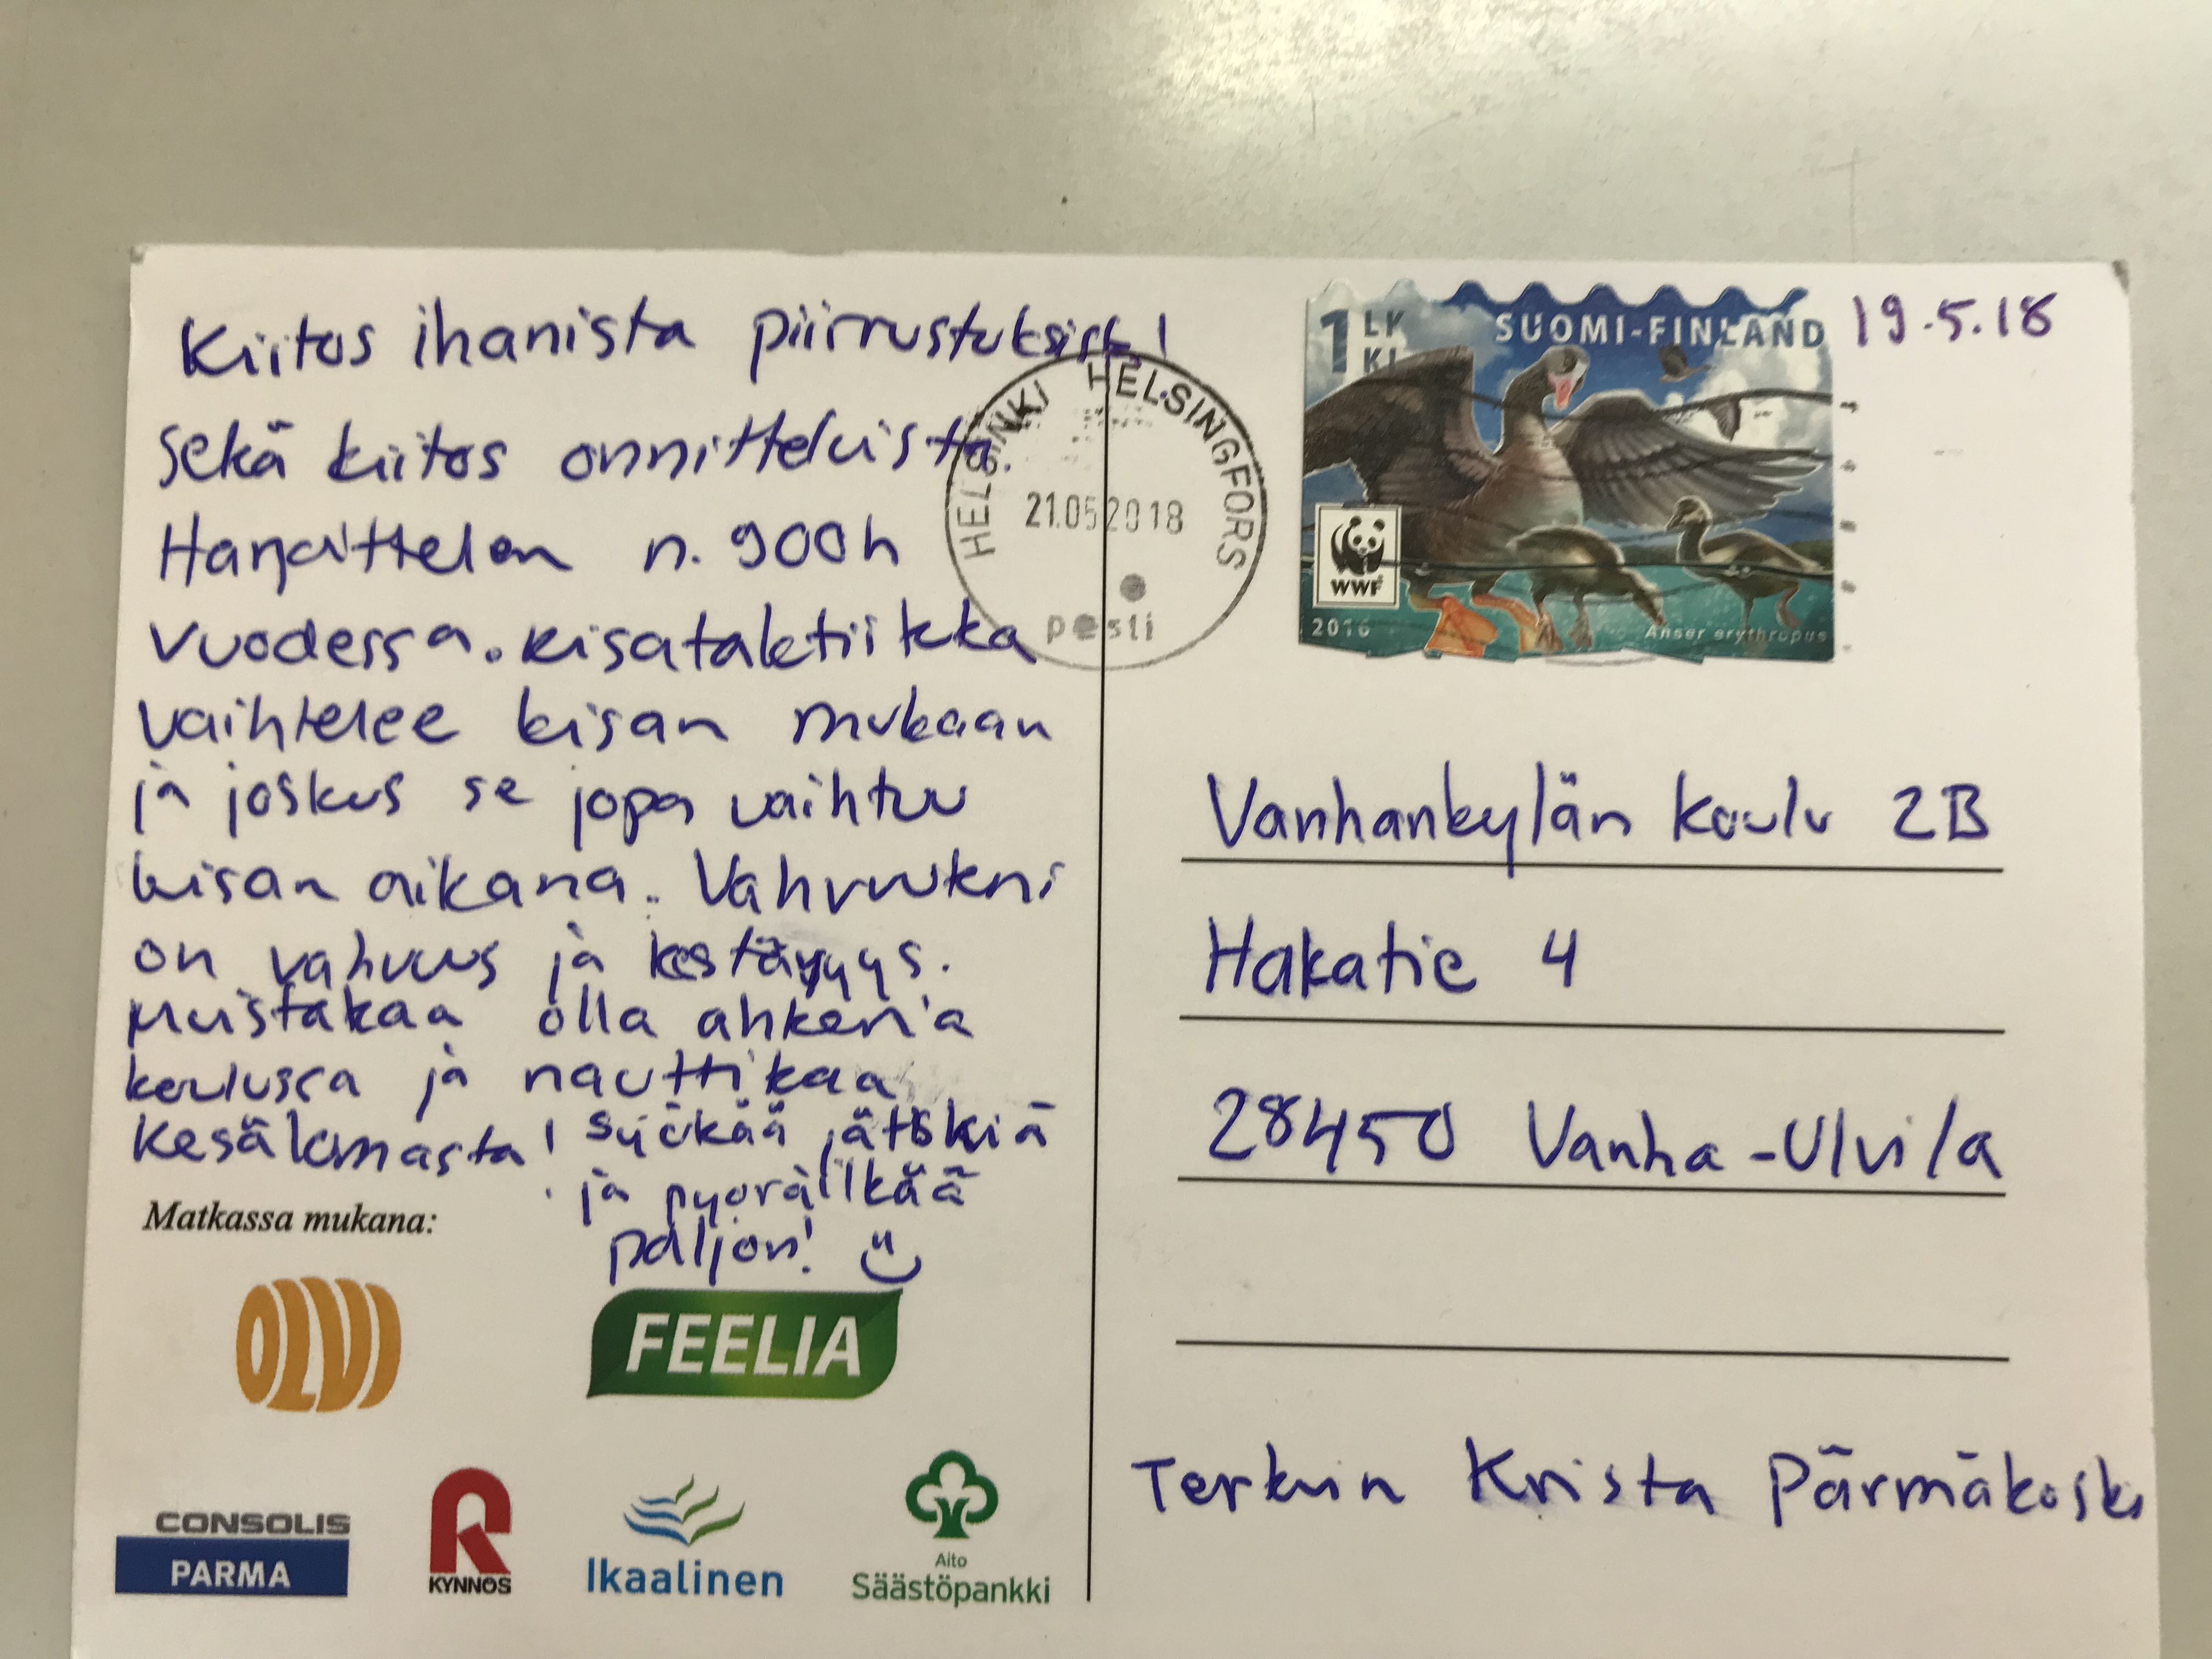 Kiitos ihanista piirrustuksista!
Sekä kiitos onnitteluista.
Harjoittelen n. 900h
vuodessa. Kisataktiikka
vaihtelee kisan mukaan
ja joskus se jopa vaihtuu
kisan aikana. Vahvuukni
on vahvuus ja kestävyys.
Muistakaa olla ahkeria
koulussa ja nauttikaa
kesälomasta! Syökää jätskiä
ja pyöräilkää
paljon!
Matkassa mukana:
OLVI
FEELIA
CONSOLIS
PARMA
KYNNÖS
Ikaalinen
Aito
Säästöpankki
HELSINKI HELSINGFORS
21.05.2018
posti
1 LK
KL
SUOMI-FINLAND
WWF
2016
Anser erythropus
19.5.18
Vanhankylän koulu 2B
Hakatie 4
28450 Vanha-Ulvila
Terkuin Krista Pärmäkoski